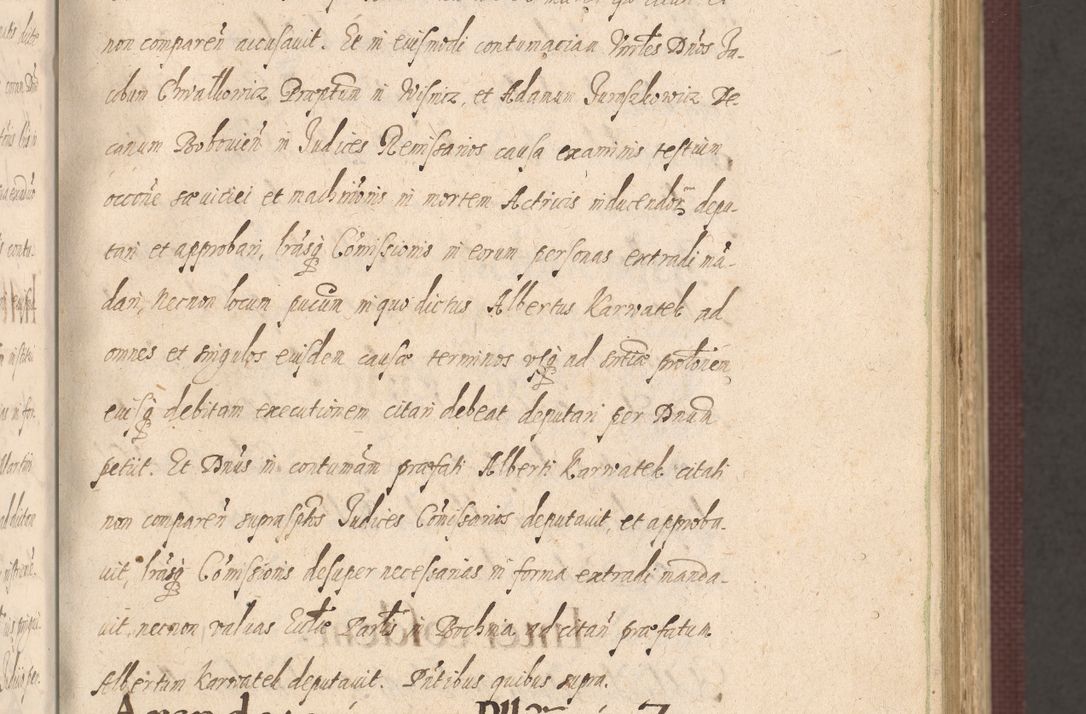 non comparen̄ accusavit. Et in eiusmodi contumaciam Vnrbles Dnos Ja-
cobum Chwalkowicz Præptum in Wisnicz, et Adamum Juraszkowicz De
canum Bobovien̄ in Judices Remissarios causa examinis testium
occōne sæviciei et machinōnis in mortem Actricis inducendor̄ depu-
tari et approbari, lrasq́ Com̄issionis in eorum personas extradi mā-
dari, necnon locum pucum in quo dictus Albertus Karwatek ad
omnes et singulos eiusdem causæ terminos usq́ ad sntiæ prolōnem
eiusq́ debitam executionem citari debeat deputari per Dnum
petiit. Et Dnus in contumām præfati Alberti Karwatek citati
non comparen̄ suprasptos Judices Com̄isarios deputavit, et approba
vit, lrasq́ Com̄issionis desuper necessarias in forma extradi manda-
vit, necnon valvas Eccłæ Parłis in Bochnia ad citan̄ præfatum
Albertum Karwatek deputavit. Pntibus quibus supra.